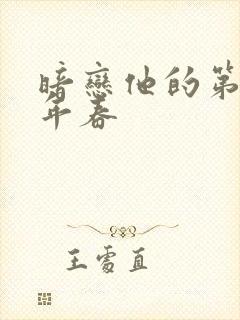 暗戀他的第
年春
王雩直